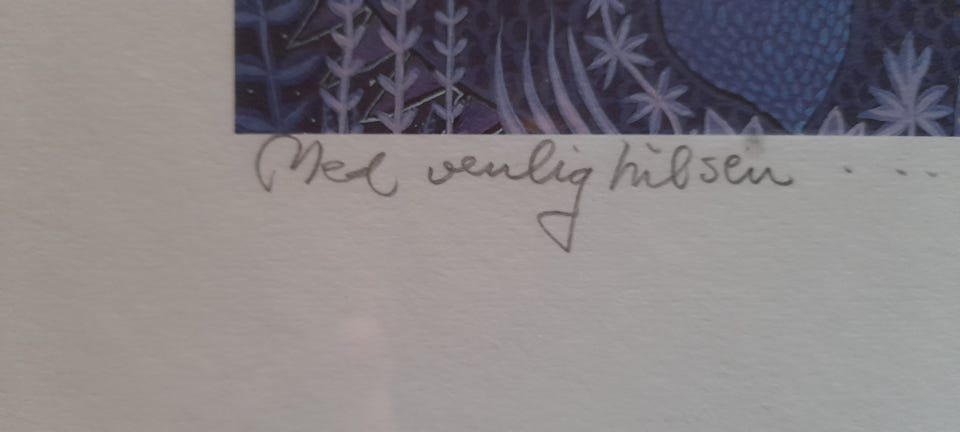 Med venlig hilsen . . .